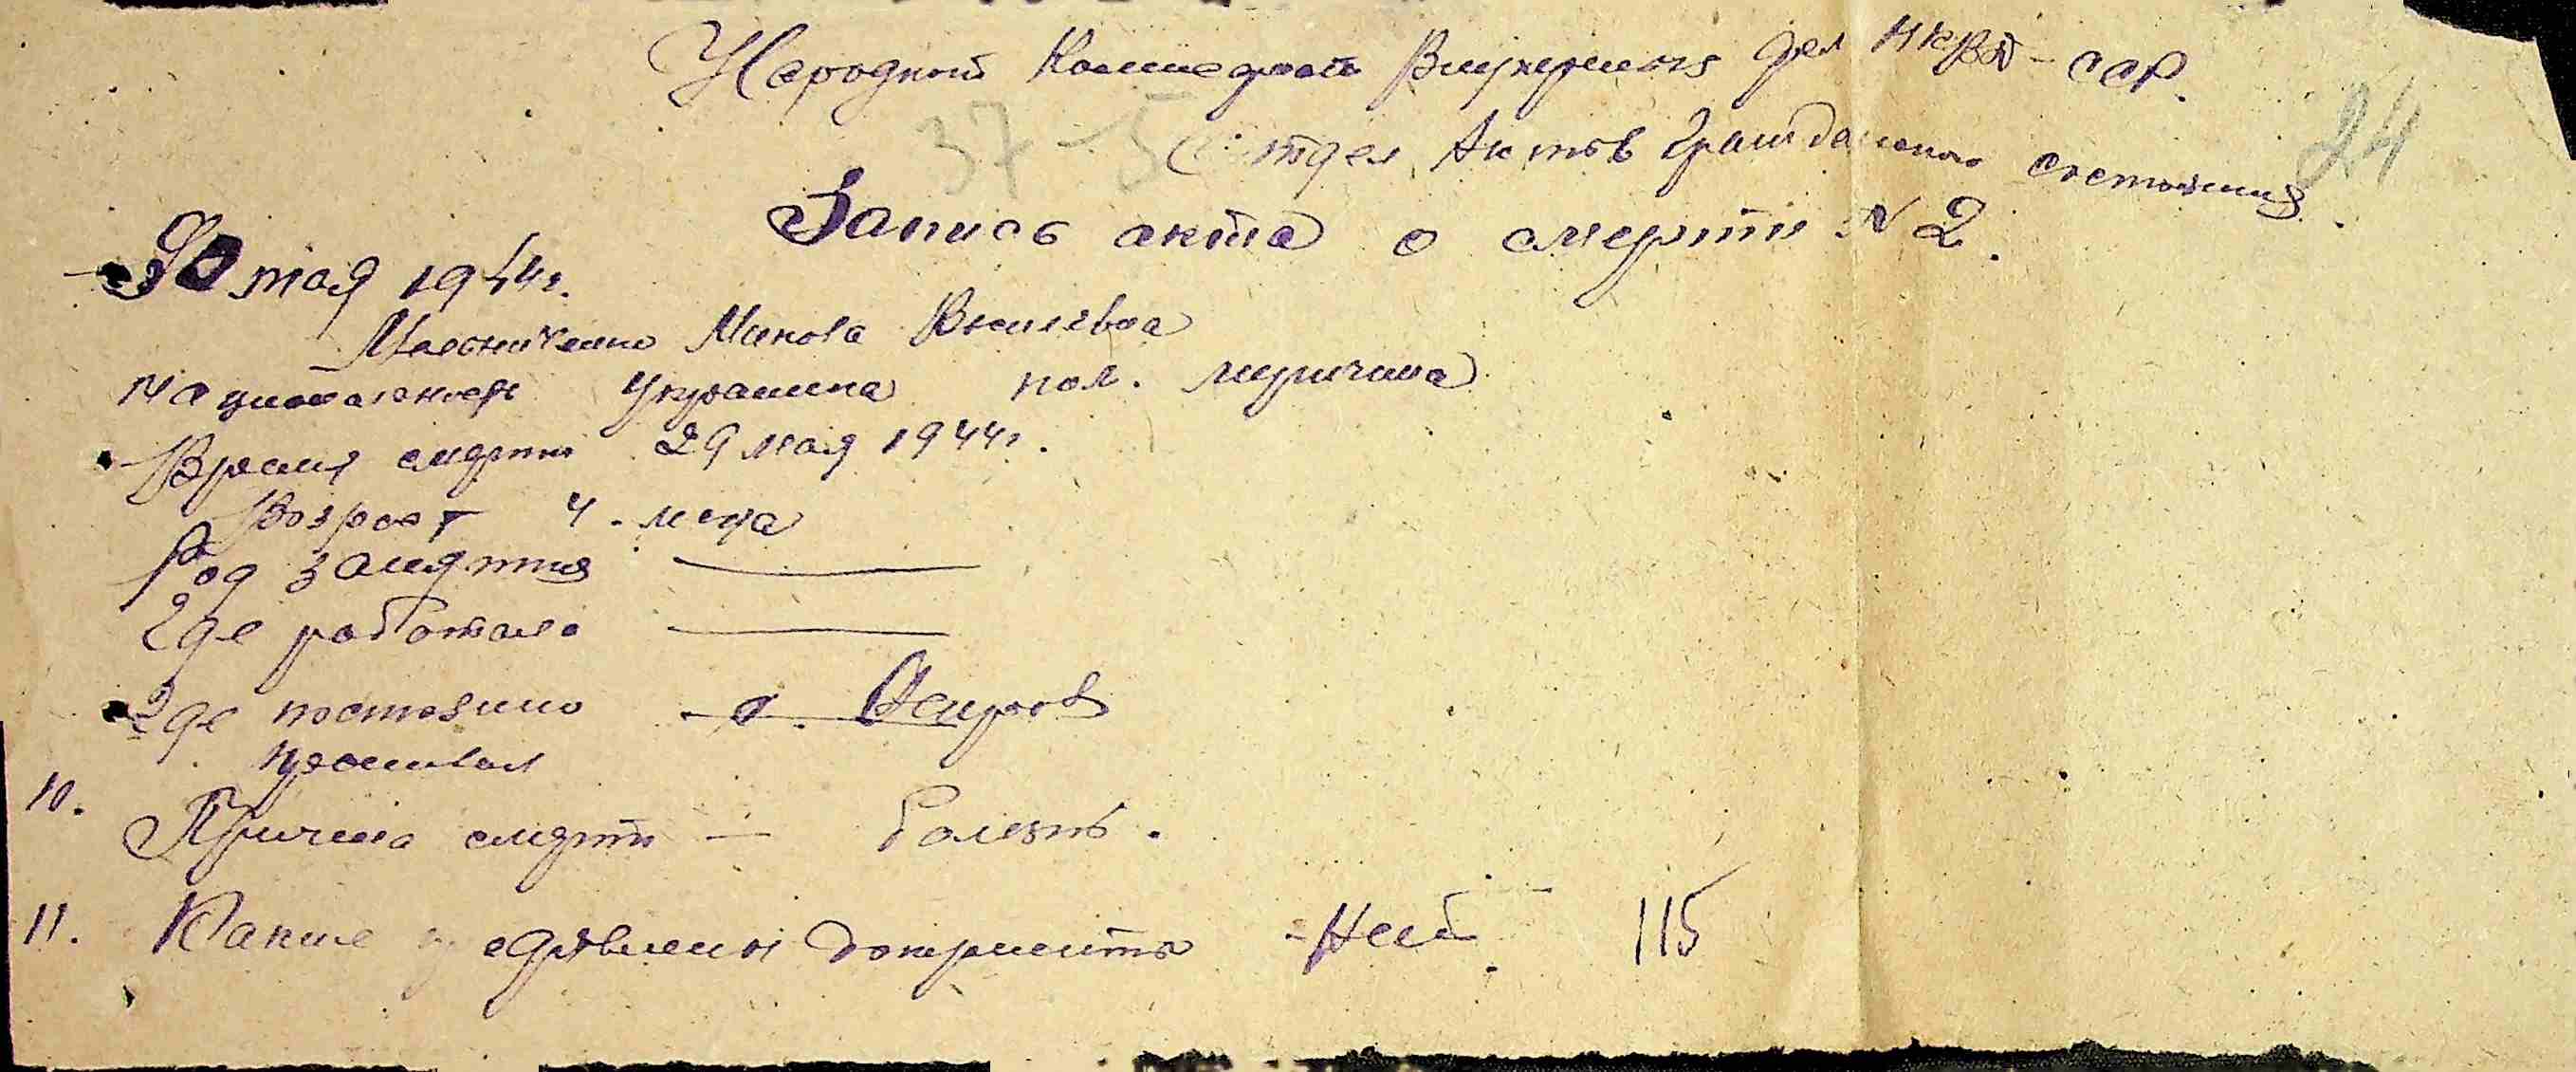 Народный Комиссариат Внутренних Дел НКВД - ССР.
24
37 - 5
Отдел Актов Гражданского состояния.
Запись акта о смерти N 2.
30 мая 1944г.
Мельниченко Микола Васильевич
Национальность Украинец пол. мужчина
Время смерти 29 мая 1944г.
Возраст 4. лета
Род занятия ———
Где работал ———
Где постоянно
проживал
10. Причина смерти — болезнь.
11. Какие предъявлены документы - Нет. 115